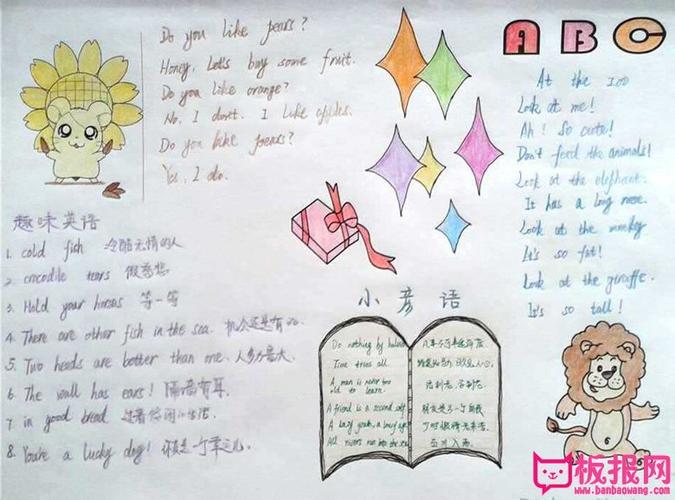 Do you like pears?
Honey, Let's buy some fruit.
Do you like orange?
No, I don't. I like apples.
Do you like pears?
Yes, I do.
ABC
At the zoo
Look at me!
Ah! So cute!
Don't feed the animals!
Look at the elephant.
It has a long nose.
Look at the monkey
It's so fat!
Look at the giraffe.
It's so tall!
趣味英语
1. cold fish 冷酷无情的人
2. crocodile tears 假慈悲
3. Hold your horses 等一等
4. There are other fish in the sea. 机会还是有的.
5. Two heads are better than one. 人多力量大.
6. The wall has ears! 隔墙有耳.
7. in good bread 过着悠闲的生活
8. You're a lucky dog! 你真是一个幸运儿.
小彦语
Do nothing by halves
Time tries all
A man is never too
old to learn.
A friend is a second self
A lazy youth, a lousy age
All rivers run into the sea
凡事不可半途而废
路遥知马力,日久见人心.
活到老,学到老.
朋友是另一个自我
少时懒惰老来苦.
百川入海.
板报网
www.banbaowang.com